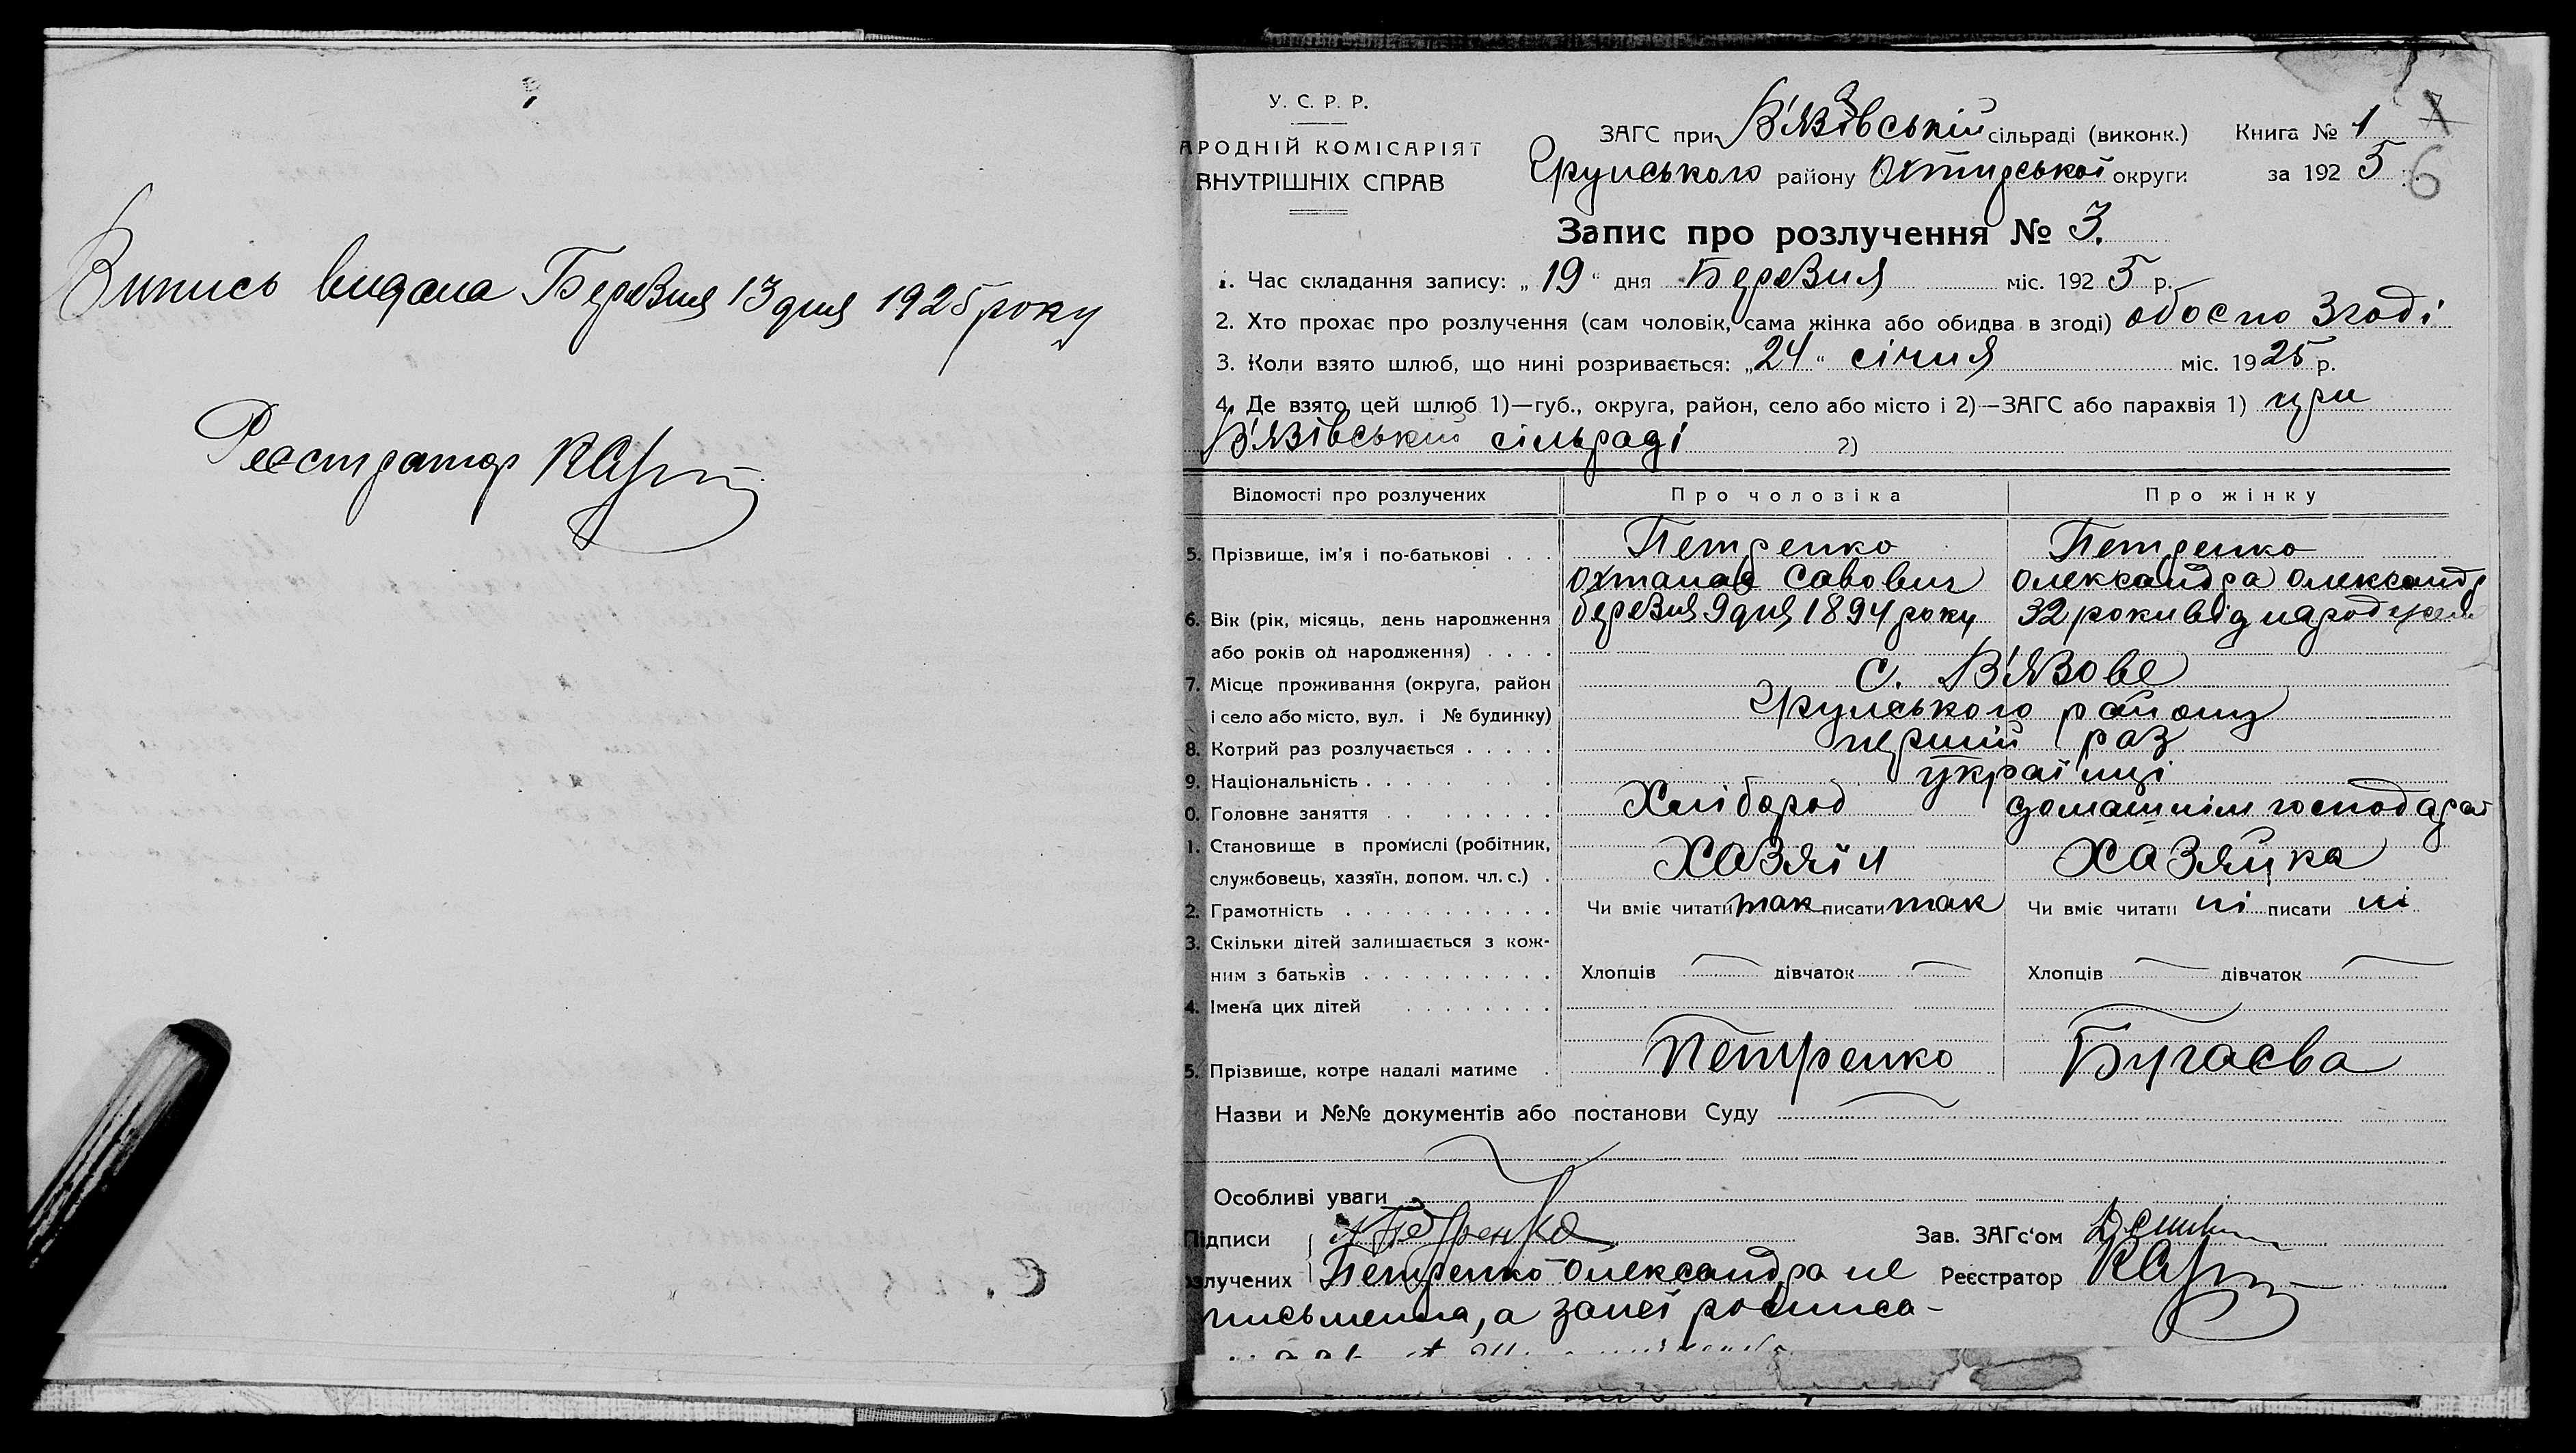 Випись видана Березня 13 дня 1925 року
Реєстратор
У. С. Р. Р.
АРОДНІЙ КОМІСАРІЯТ
ВНУТРІШНІХ СПРАВ
ЗАГС при В'язівській сільраді (виконк.) Книга № 1
Грунського району Охтирської округи за 192 5 6
Запис про розлучення № 3.
1. Час складання запису: „ 19 " дня Березня міс. 192 5 р.
2. Хто прохає про розлучення (сам чоловік, сама жінка або обидва в згоді) обоє по згоді
3. Коли взято шлюб, що нині розривається: „ 24 " січня міс. 19 25 р.
4. Де взято цей шлюб 1)—губ., округа, район, село або місто і 2)—ЗАГС або парахвія 1) при
В'язівській сільраді 2)
Відомості про розлучених Про чоловіка Про жінку
5. Прізвище, ім'я і по-батькові . . . Петренко Петренко
Охтанав Савович Олександра Олександр
6. Вік (рік, місяць, день народження березня 9 дня 1894 року 32 роки від народжен
або років од народження) . . . .
7. Місце проживання (округа, район с. В'язове
і село або місто, вул. і № будинку) Грунського району
8. Котрий раз розлучається . . . . . перший раз
9. Національність . . . . . українці
0. Головне заняття . . . . . . . . . Хлібороб домашнім господар
1. Становище в промислі (робітник,
службовець, хазяїн, допом. чл. с.) . хазяїн хазяйка
2. Грамотність . . . . . . . . . . . Чи вміє читати так писати так Чи вміє читати ні писати ні
3. Скільки дітей залишається з кож-
ним з батьків . . . . . . . . . . Хлопців — дівчаток — Хлопців — дівчаток —
4. Імена цих дітей . . . . . . . .
5. Прізвище, котре надалі матиме . Петренко Бугаєва
Назви и №№ документів або постанови Суду —
Особливі уваги
Підписи Петренко Зав. ЗАГс'ом
злучених Петренко Олександра не Реєстратор
письменна, а занеї росписа-